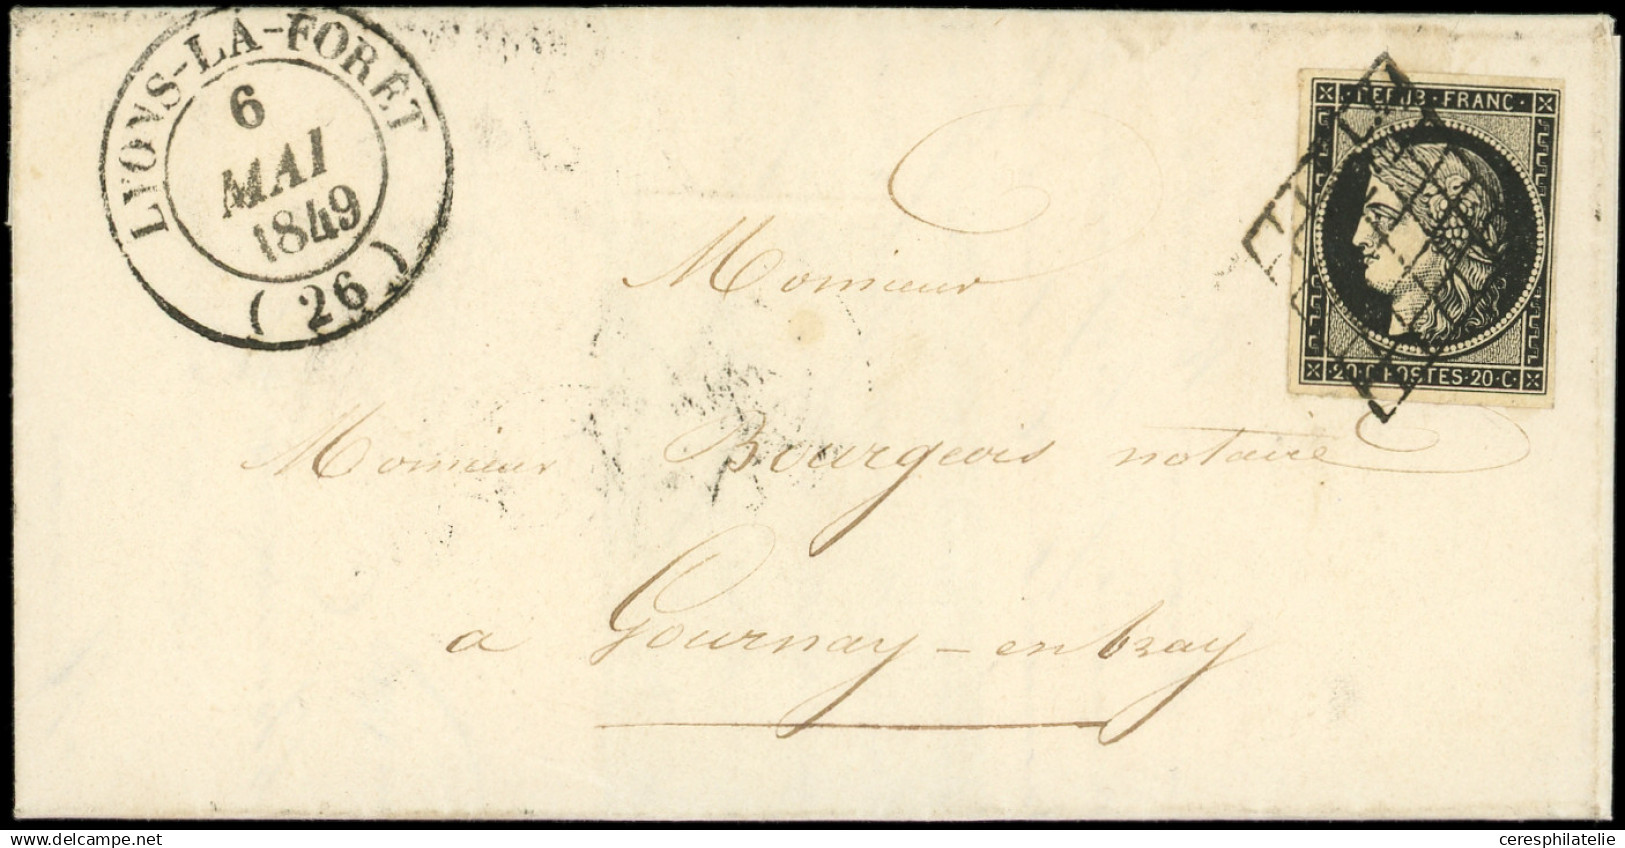 LYONS-LA-FORÊT
6
MAI
1849
(26)
REPUB·FRANC·
20·C·POSTES·20·C·
Monsieur
Monsieur Bourgeois notaire
a Gournay-en bray
ceresphilatelie